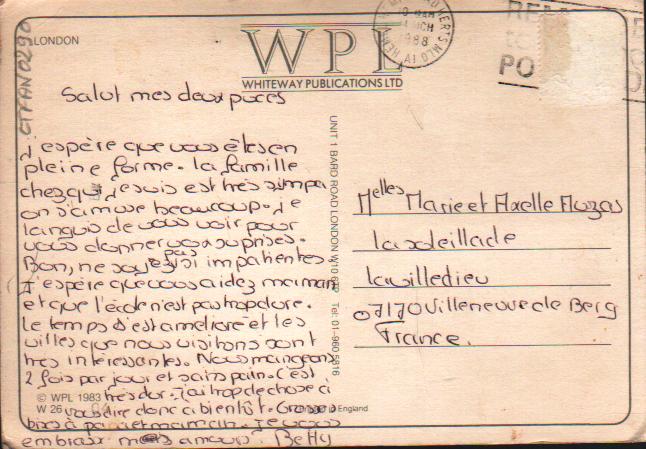 CTFAN0290
LONDON
WPL
WHITEWAY PUBLICATIONS LTD
1988
PO
Salut mes deux puces
J'espère que vous êtes en
pleine forme. la famille
chez qui je suis est très sympa
on s'amuse beaucoup. je
languis de vous voir pour
vous donner vos surprises.
Bon, ne soyez pas si impatientes
J'espère que vous aidez maman
et que l'école n'est pas trop dure.
Le temps s'est amélioré et les
villes que nous visitons sont
très intéressantes. Nous mangeons
2 fois par jour et sans pain. c'est
très dur. J'ai trop de chose à
vous dire donc à bientôt. Grosses
bises à papa et maman. Je vous
embrasse mes amours Betty
© WPL 1983
W 26
England
UNIT 1 BARD ROAD LONDON W10 Tel: 01-960 5816
Melles Marie et Axelle Auzas
la soleillade
lavilledieu
07170 Villeneuve de Berg
France.